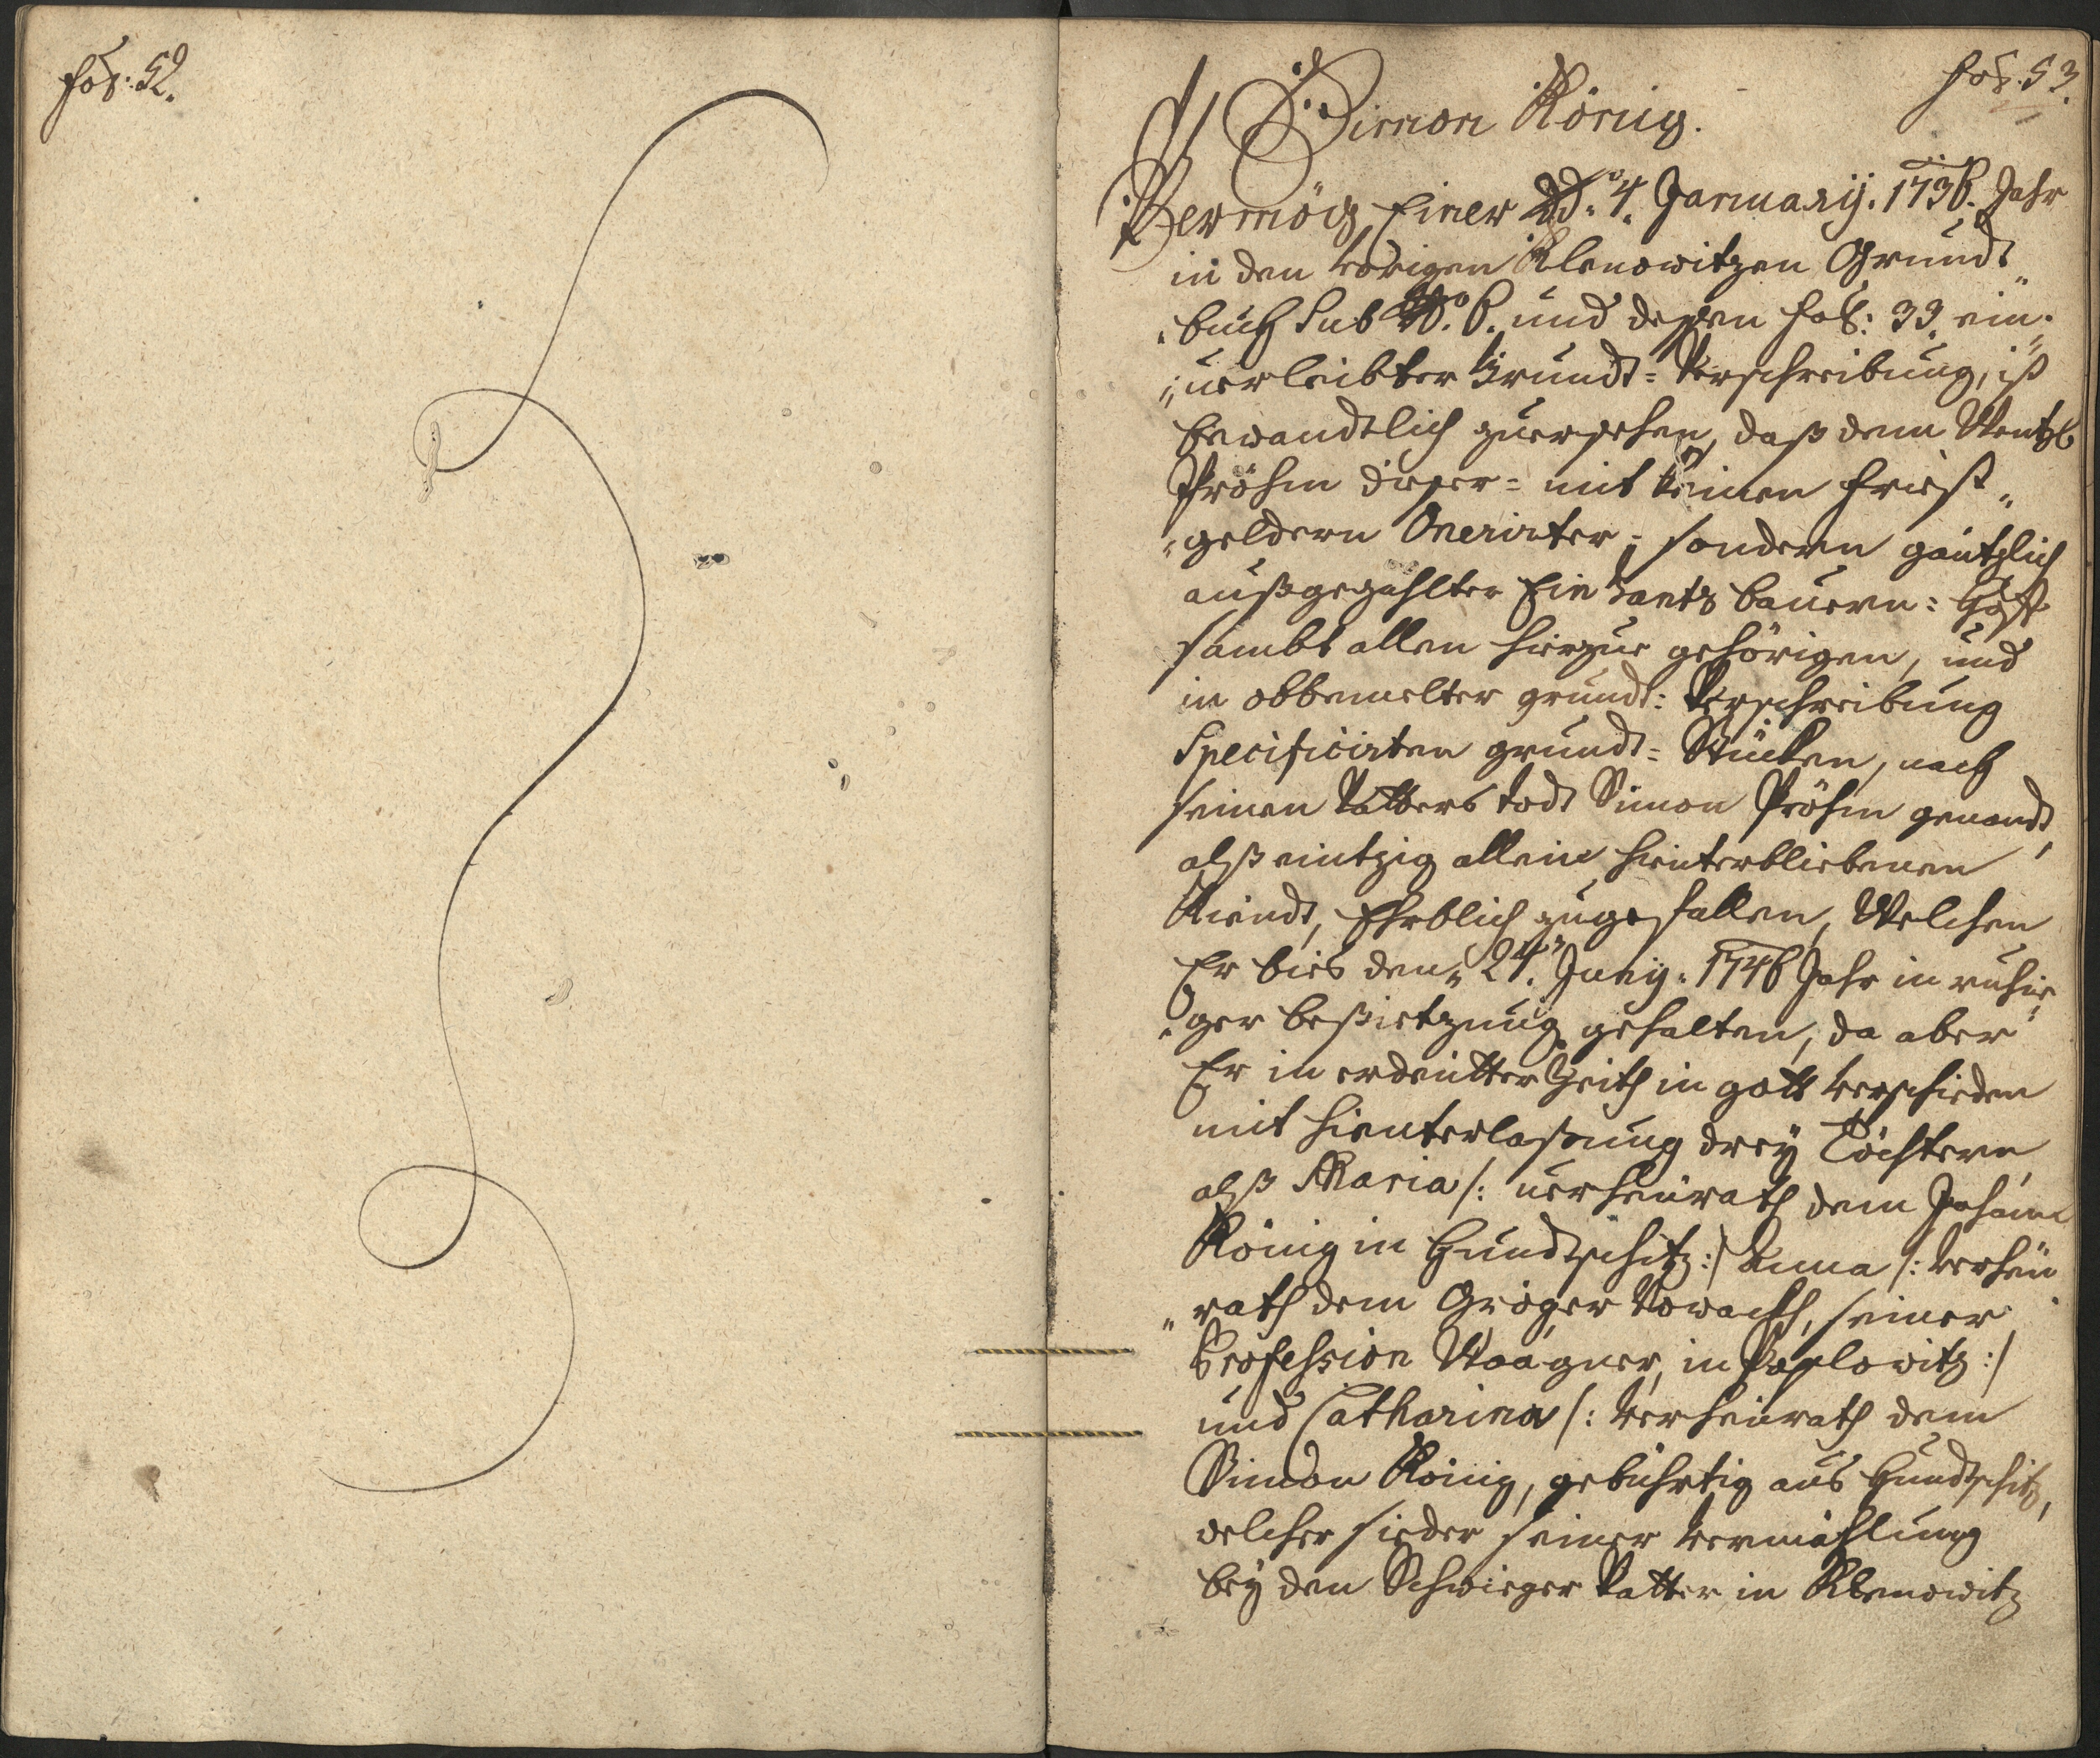 fol: 52.
fol. 53.
Simon König.
Vermög Einer dd.o 4. January. 1736. Jahr
in den vorigen Klenowitzen Grundt
buch sub N.o 6. und deßen fol: 33. ein
verleibter Grundt-Verschreibung, ist
bewandtlich zuersehen, daß dem Wentzl
Pröhm dieser- mit keinen Friest
geldern Onerirter- sondern gäntzlich
außgezahlter Ein Gantz bauern: Hoff
sambt allen hierzue gehörigen, und
in obbemelter grundt: Verschreibung
Specificirten grundt-Stücken, nach
seinen Vatters todt Simon Pröhm genandt,
alß eintzig allein hinterbliebenen
Kiendt, Ehrblich zugefallen, Welchen
Er bies den 24. Juny. 1746 Jahr in ruhie
ger beßietzung gehalten, da aber
Er in erdeutter Zeith in gott verschieden
mit hienterlaßung drey Töchtern
alß Maria /: verheurath dem Johann
König in Hundtschitz :/ Anna /: verheu
rath dem Gröger Nowackh, seiner
Profession Waagner, in Poplowitz :/
und Catharina /: verheurath dem
Simon König, gebührtig aus Hundtschitz,
welcher sieder seiner vermählung
bey den Schwieger Vatter in Klenowitz